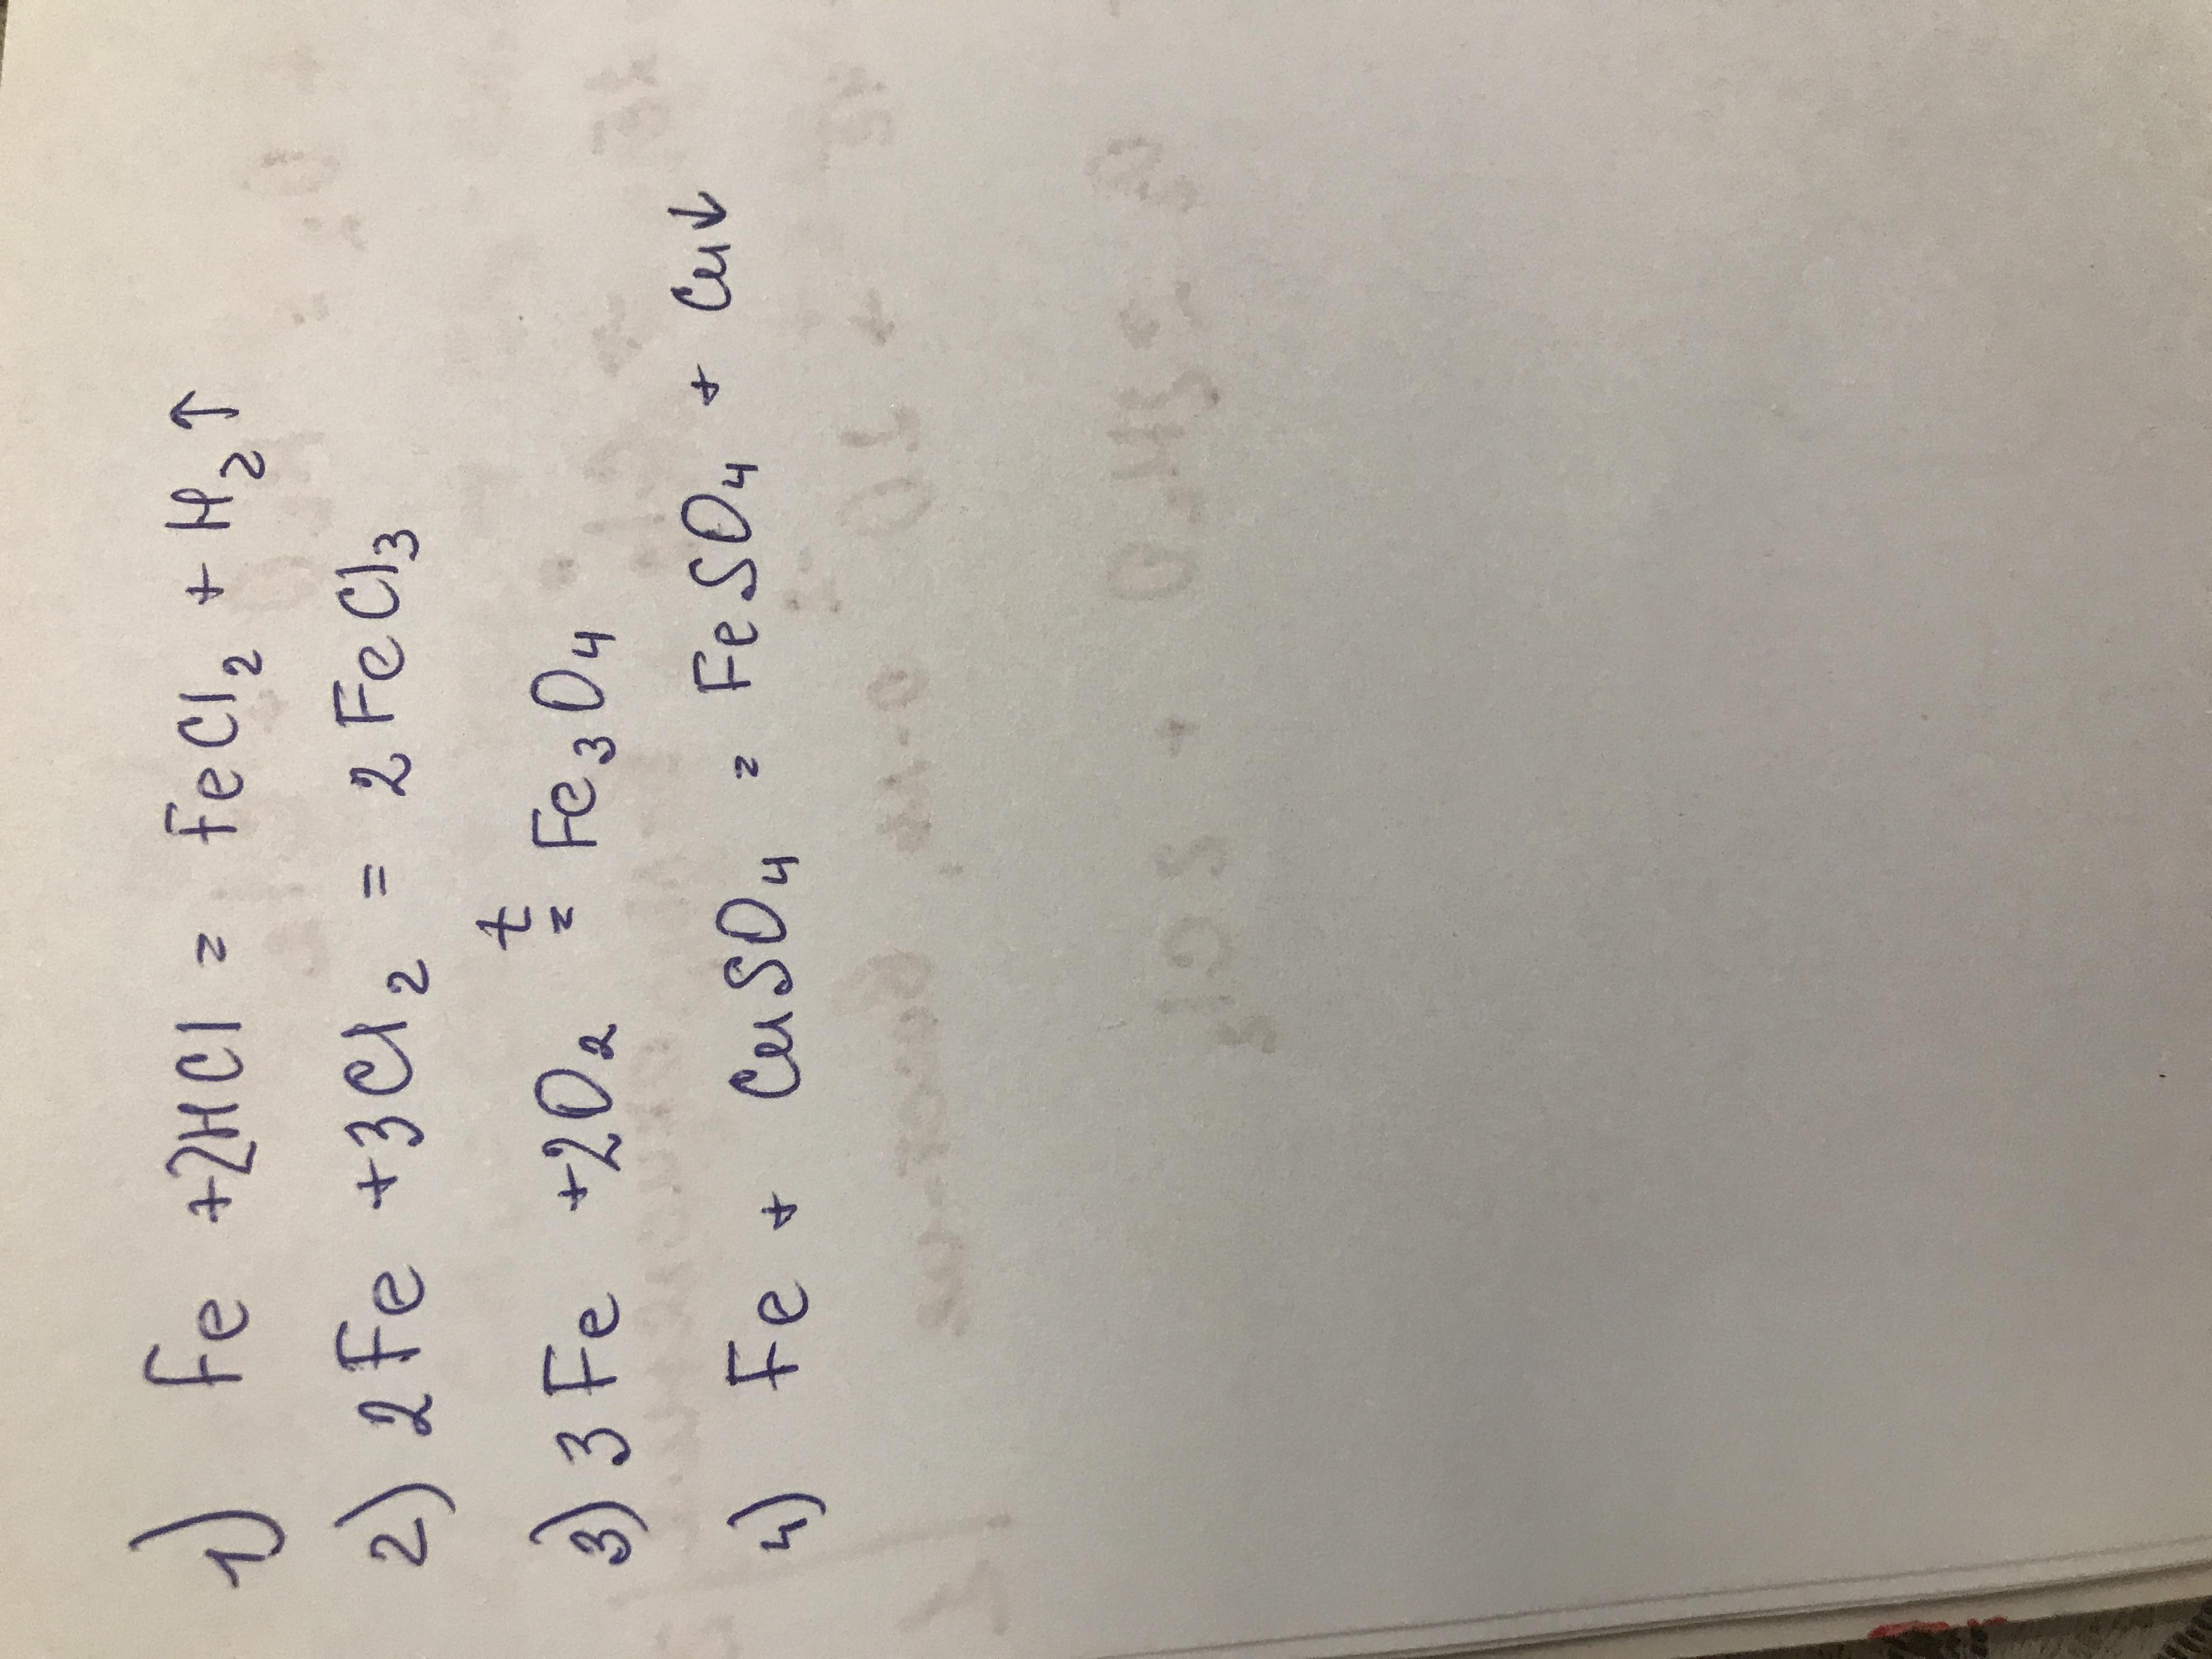 1) Fe +2HCl = FeCl₂ + H₂↑
2) 2Fe +3Cl₂ = 2FeCl₃
3) 3Fe +2O₂ =ᵗ Fe₃O₄
4) Fe + CuSO₄ = FeSO₄ + Cu↓